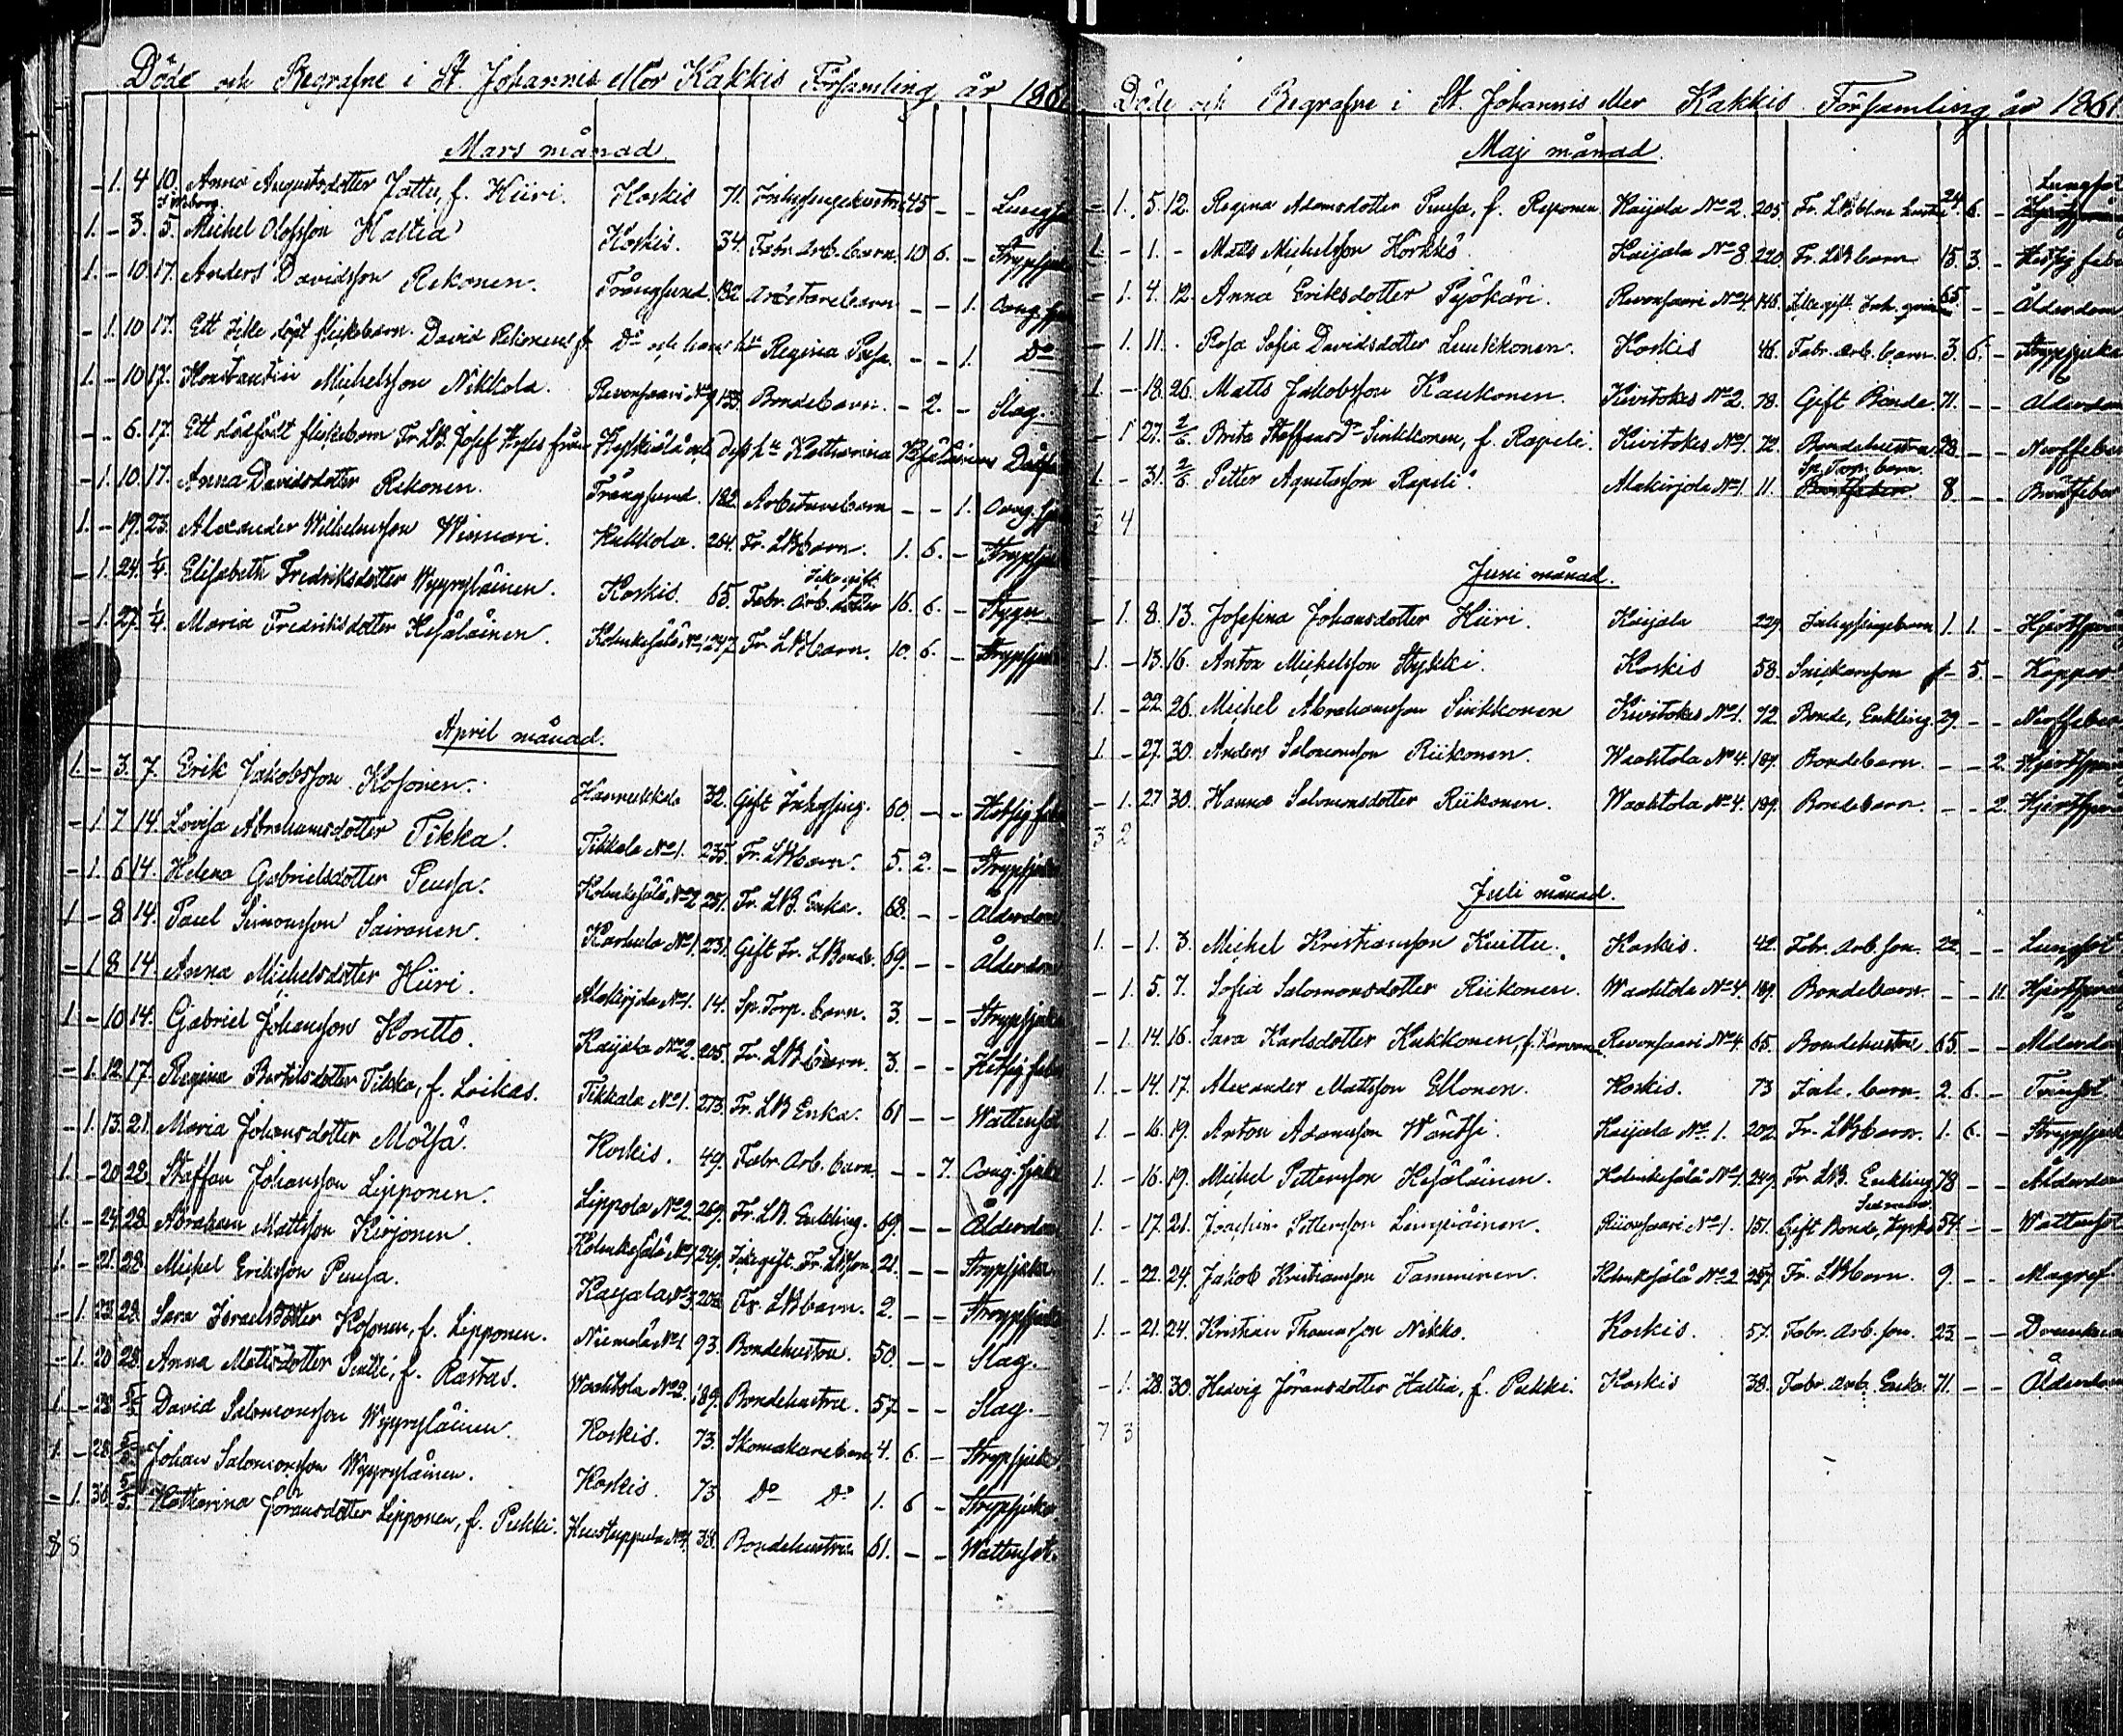 Döde och Begrafne i St. Johannis eller Kakkis Församling år 186
Mars månad.
- 1. 4 10. Anna Augustsdotter Jattu, f. Hiiri. Koskis 71. Inhysingehustru 45 - - Lungs
1. - 3. 5. Michel Olofsson Haltia Koskis. 34. Fabr. Arb. barn. 10 6. - Strypsju
1. - 10. 17. Anders Davidsson Rekonen. Trångsund. 182. Arbetarebarn - - 1. Oang.
- 1. 10 17. Ett icke döpt flickebarn. David Rekonens Do och hans hu Regina - - 1. Do
1. - 10 17. Konstantin Michelsson Nikkola. Revonsaari No 9 153. Bondebarn. - 2. - Slag.
- - 6. 17. Ett dödfödt flickebarn Fr. LB. Josef från och dess hu Katharina
- 1. 10. 17. Anna Davidsdotter Rekonen. Trångsund. 182. Arbetarebarn - - 1. Oang.
1. - 19. 23. Alexander Wilhelmsson Wiemari. Kukkola. 264. Fr. LBbarn. 1. 6. - Strypsju
- 1. 24. 1/4. Elisabeth Fredriksdotter Wyyryläinen. Koskis. 65. Icke gift Fabr. Arb. dotter 16. 6. -
- 1. 27. 1/4. Maria Fredriksdotter Kesäläinen. Kolmikesälä No 1 247. Fr. LBbarn. 10. 6. - Strypsju
April månad.
1. - 3. 7. Erik Jakobsson Kosonen. Hannukkala 32. Gift Inhysing. 60. - - Hetsig feb
- 1 7 14. Lovisa Abrahamsdotter Tikka. Tikkala No 1. 235. Fr. LBbarn. 5. 2. - Strypsju
- 1. 6 14. Helena Gabrielsdotter Peusa. Kolmikesälä No 2 251. Fr. LB. Enka. 68. - - Ålderdom
1 - 8 14. Paul Simonsson Sairanen. Karhula No 1. 231. Gift Fr. LBonde. 69. - - Ålderdom
- 1 8 14. Anna Michelsdotter Hiiri. Alakirjola No 1. 14. Sp. Torp. barn. 3. - - Strypsjuk
1 - 10 14. Gabriel Johansson Kontto. Kaijala No 2. 205. Fr. LBbarn. 3. - - Hetsig feb
- 1. 12 17. Regina Bertilsdotter Tikka, f. Loikas. Tikkala No 1. 273. Fr. LB Enka. 61 - - Wattusot
- 1. 13. 21. Maria Johansdotter Mölsä. Koskis. 49. Fabr. Arb. barn. - - 7. Oang. sjuk
1. - 20 28. Staffan Johansson Lipponen. Lippola No 2. 269. Fr. LB. Enkling. 69. - - Ålderdom
1. - 24. 28. Abraham Mattsson Kerjonen. Kolmikesälä No 1 249. Icke gift. Fr. LBson. 21. - - Strypsjuka
1. - 21. 28. Michel Eriksson Peusa. Kaijala No 3. 208. Fr. LBbarn. 2. - - Strypsjuk
- 1. 23. 28. Sara Israelsdotter Kosonen, f. Lipponen. Niemelä No 1. 93. Bondehustru. 50. - - Slag.
- 1. 20 28. Anna Mattsdotter f. Rastas. Waahtola No 2. 189. Bondehustru. 57 - - Slag.
1. - 28 5/5 David Salomonsson Wyyryläinen. Koskis. 73. Skomakarebarn 4. 6. - Strypsjuk
1. - 28. 5/5 Johan Salomonsson Wyyryläinen. Koskis. 73. Do Do 1. 6 - Strypsjuka.
- 1. 30. 5/5. Katharina Jöransdotter Lipponen, f. Pukki. No 1. 38. Bondehustru 61. - - Wattusot.
8 8
Döde och Begrafne i St. Johannis eller Kakkis Församling år 1861.
Maj månad.
- 1. 5. 12. Regina Adamsdotter Peusa, f. Reponen Kaijala No 2. 205 Fr. LBdes hustru 24. 6. - Lungsot
1. - 1. - Matts Michelsson Hörkkö. Kaijala No 8. 220. Fr. LBbarn 15. 3. - Hetsig feb
- 1. 4. 12. Anna Eriksdotter Pyökäri. Revonsaari No 4. 146. Icke gift Inh. qvinna 65. - - Ålderdom
- 1. 11. - Rosa Sofia Davidsdotter Luukkonen. Koskis 46. Fabr. Arb. barn. 3. 6. - Strypsjuka
1. - 18. 26. Matts Jakobsson Kaukonen. Kivitokes No 2. 78. Gift Bonde. 71. - - Ålderdom
- 1 27. 2/6. Brita Staffansdr Sinkkonen, f. Rapeli. Kivitokes No 1. 72. Bondehustru. 28. - - Nerffeber
1. - 31. 2/6. Petter Aquetusson Rapeli. Alakirjola No 1. 11. Sp. Torp. barn 8. - - Brännfeber
3 4
Juni månad.
- 1. 8. 13. Josefina Johansdotter Hiiri. Kaijala 229. Inhysingebarn 1. 1. - Hjertsprån
1. - 13. 16. Anton Michelsson Hyökki. Koskis 58. Snickarson - 5. - Koppor
1. - 22. 26. Michel Abrahamsson Sinkkonen Kivitokes No 1. 72. Bonde, Enkling. 29. - - Nerffeber
1. - 27. 30. Anders Salomonsson Riikonen. Waahtola No 4. 189. Bondebarn. - - 2. Hjertsprån
- 1. 27 30. Hanna Salomonsdotter Riikonen. Waahtola No 4. 189. Bondebarn. - - 2. Hjertsprån
3 2
Juli månad.
1. - 1. 3. Michel Kristiansson Kuittu. Koskis. 42. Fabr. Arb. son. 22. - - Lungsot
- 1. 5. 7. Sofia Salomonsdotter Riikonen. Waahtola No 4. 189. Bondebarn. - - 11. Hjertsprån
- 1. 14. 16. Sara Karlsdotter Kukkonen, f. Revonsaari No 4. 65. Bondehustru. 65. - - Ålderdom
1. - 14. 17. Alexander Mattsson Ellonen. Koskis. 73 Inh. barn. 2. 6. - Tvinsot.
1. - 16. 19. Anton Adamsson Wäntsi. Kaijala No. 1. 202. Fr. LBbarn. 1. 6. - Strypsjuk
1. - 16. 19. Michel Pettersson Kesäläinen. Kolmikesälä No 1. 249. Fr. LB. Enkling 78 - - Ålderdom
1. - 17. 21. Joachim Pettersson Limpiäinen. Revonsaari No 1. 151. Gift Bonde, Kyrko 54. - - Wattusot
1. - 22. 24. Jakob Kristiansson Tamminen. Kolmikesälä No 2 257. Fr. LBbarn. 9. - - Magref
1. - 21. 24. Kristian Thomasson Nikko. Koskis. 57. Fabr. Arb. son. 23. - - Drunknad
- 1. 28. 30. Hedvig Jöransdotter Haltia, f. Pukki. Koskis 38. Fabr. Arb. Enka. 71. - - Ålderdom
7 3